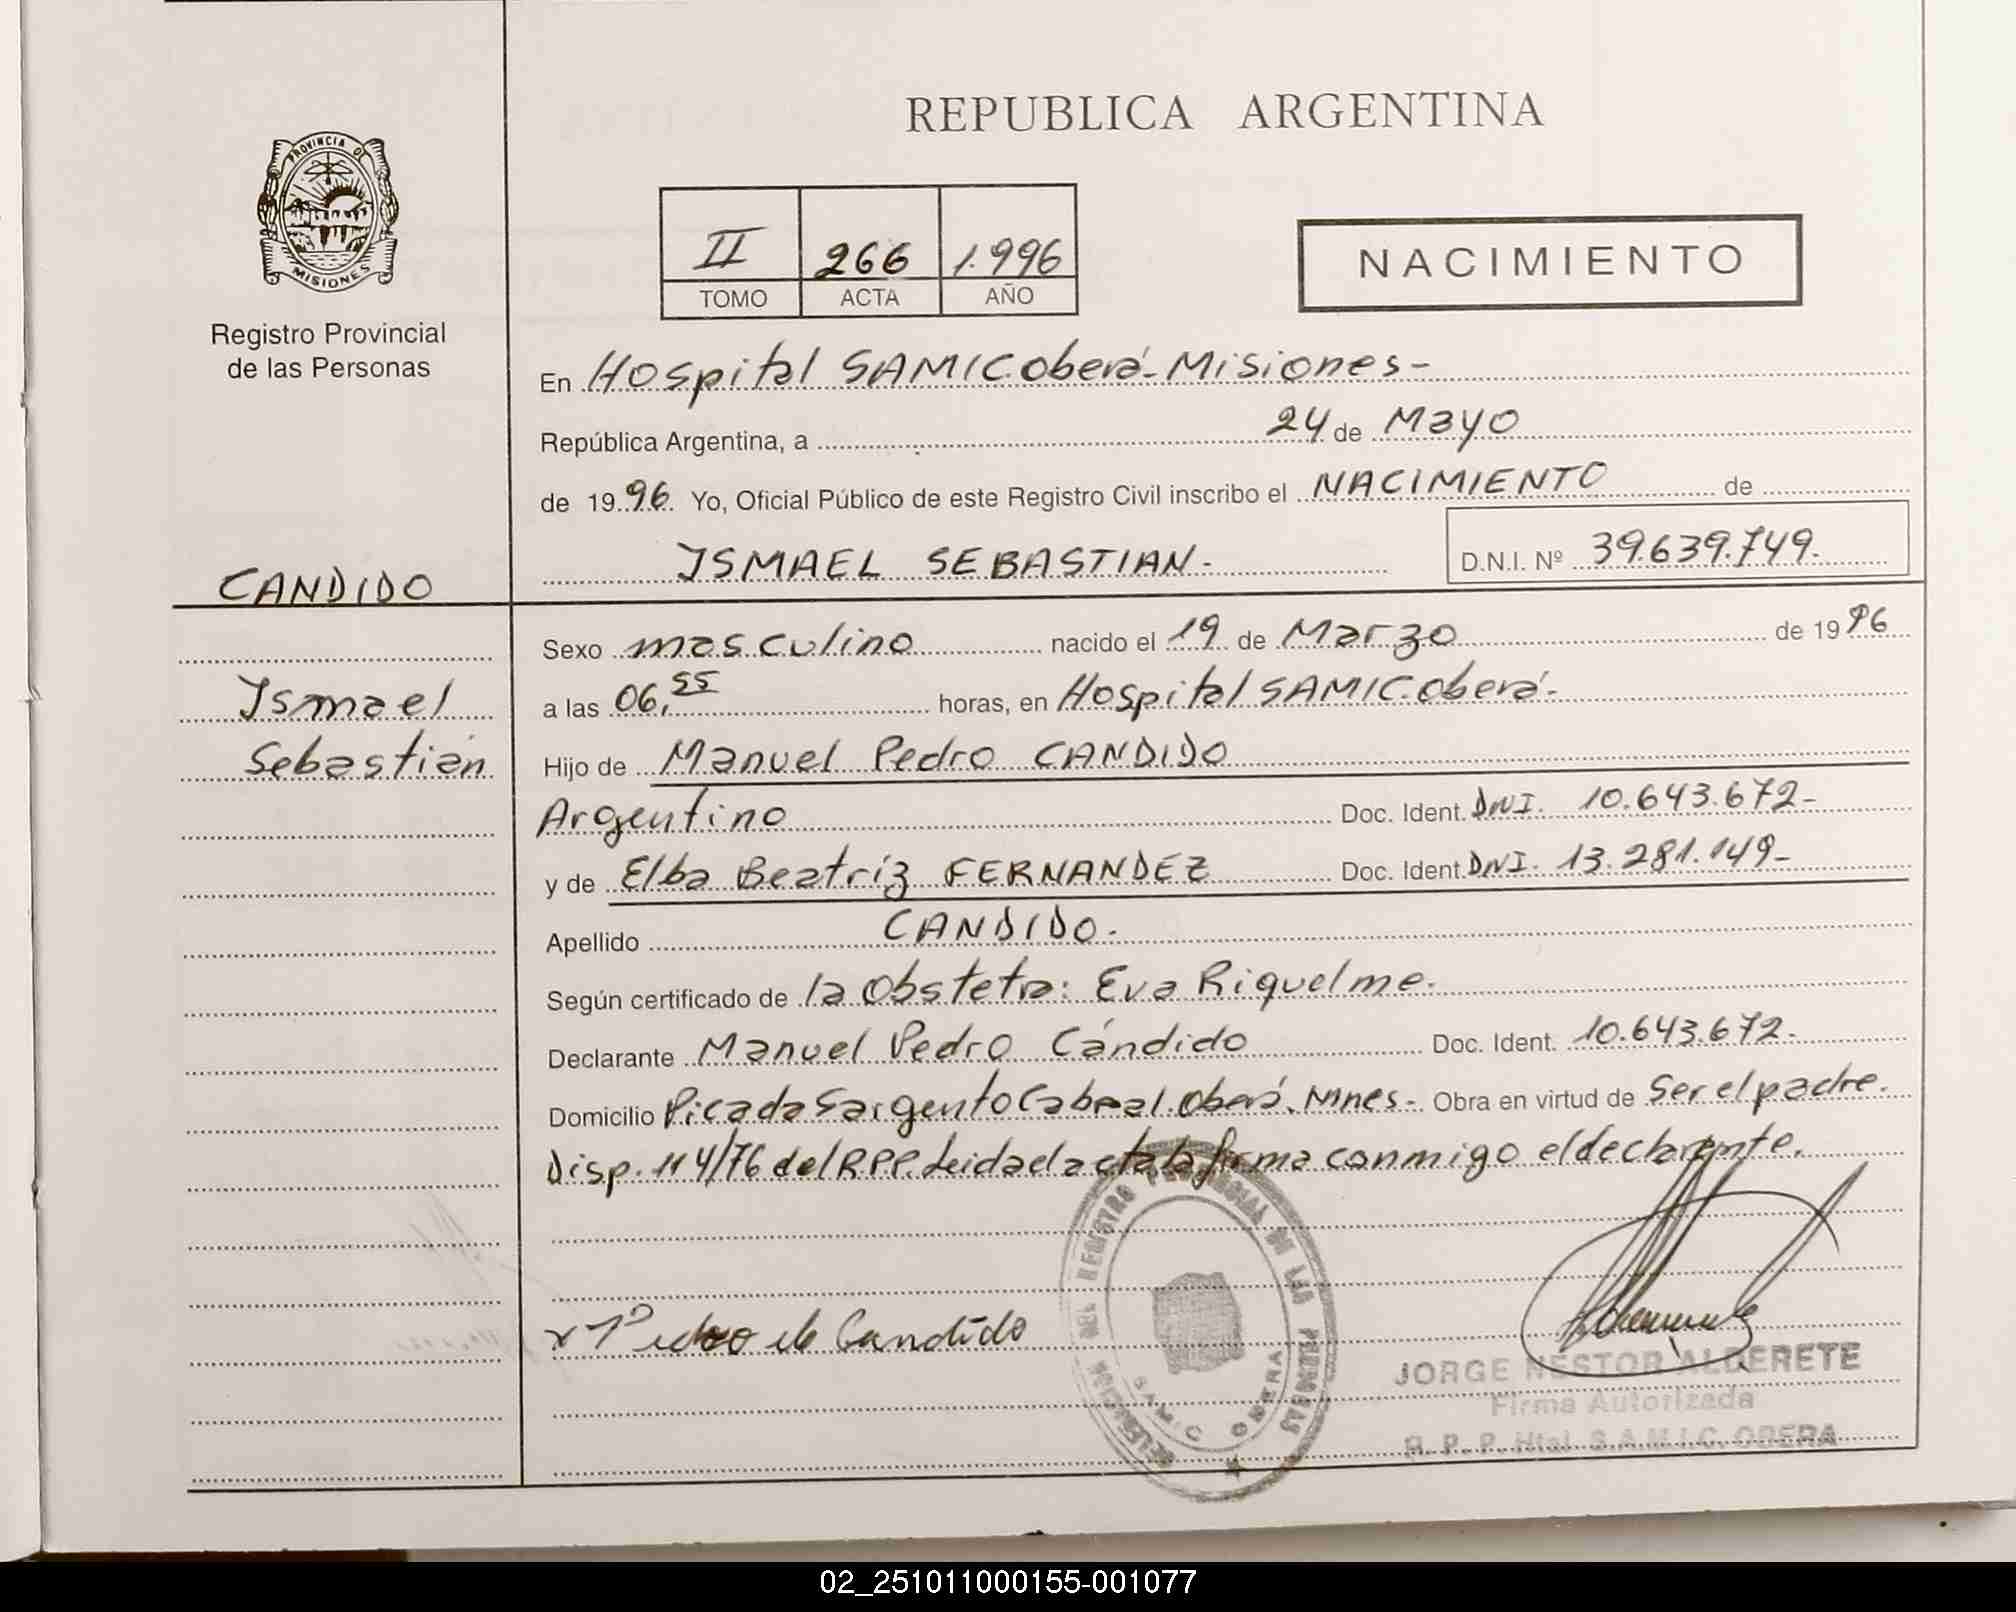 REPUBLICA ARGENTINA
PROVINCIA DE
MISIONES
Registro Provincial
de las Personas
II 266 1.996
TOMO ACTA AÑO
NACIMIENTO
En Hospital SAMIC. Oberá - Misiones -
República Argentina, a 24 de Mayo
de 1996. Yo, Oficial Público de este Registro Civil inscribo el NACIMIENTO de
ISMAEL SEBASTIAN.- D.N.I. Nº 39.639.749.
CANDIDO
Sexo masculino nacido el 19 de Marzo de 1996
Ismael
Sebastián
a las 06,55 horas, en Hospital SAMIC. Oberá-
Hijo de Manuel Pedro CANDIDO
Argentino Doc. Ident. DNI. 10.643.672-
y de Elba Beatríz FERNANDEZ Doc. Ident. DNI. 13.281.149-
Apellido CANDIDO.
Según certificado de la Obstetra: Eva Riquelme.
Declarante Manuel Pedro Cándido Doc. Ident. 10.643.672.
Domicilio Picada Sargento Cabral. Oberá. Mnes- Obra en virtud de Ser el padre.
Disp. 114/76 del R.P.P. Leida el acta la firma conmigo el declarante.
Candido
DELEGACION DEL REGISTRO PROVINCIAL DE LAS PERSONAS
SAMIC OBERA
JORGE NESTOR ALDERETE
Firma Autorizada
R. P. P. Htal. S.A.M.I.C. OBERA
02_251011000155-001077